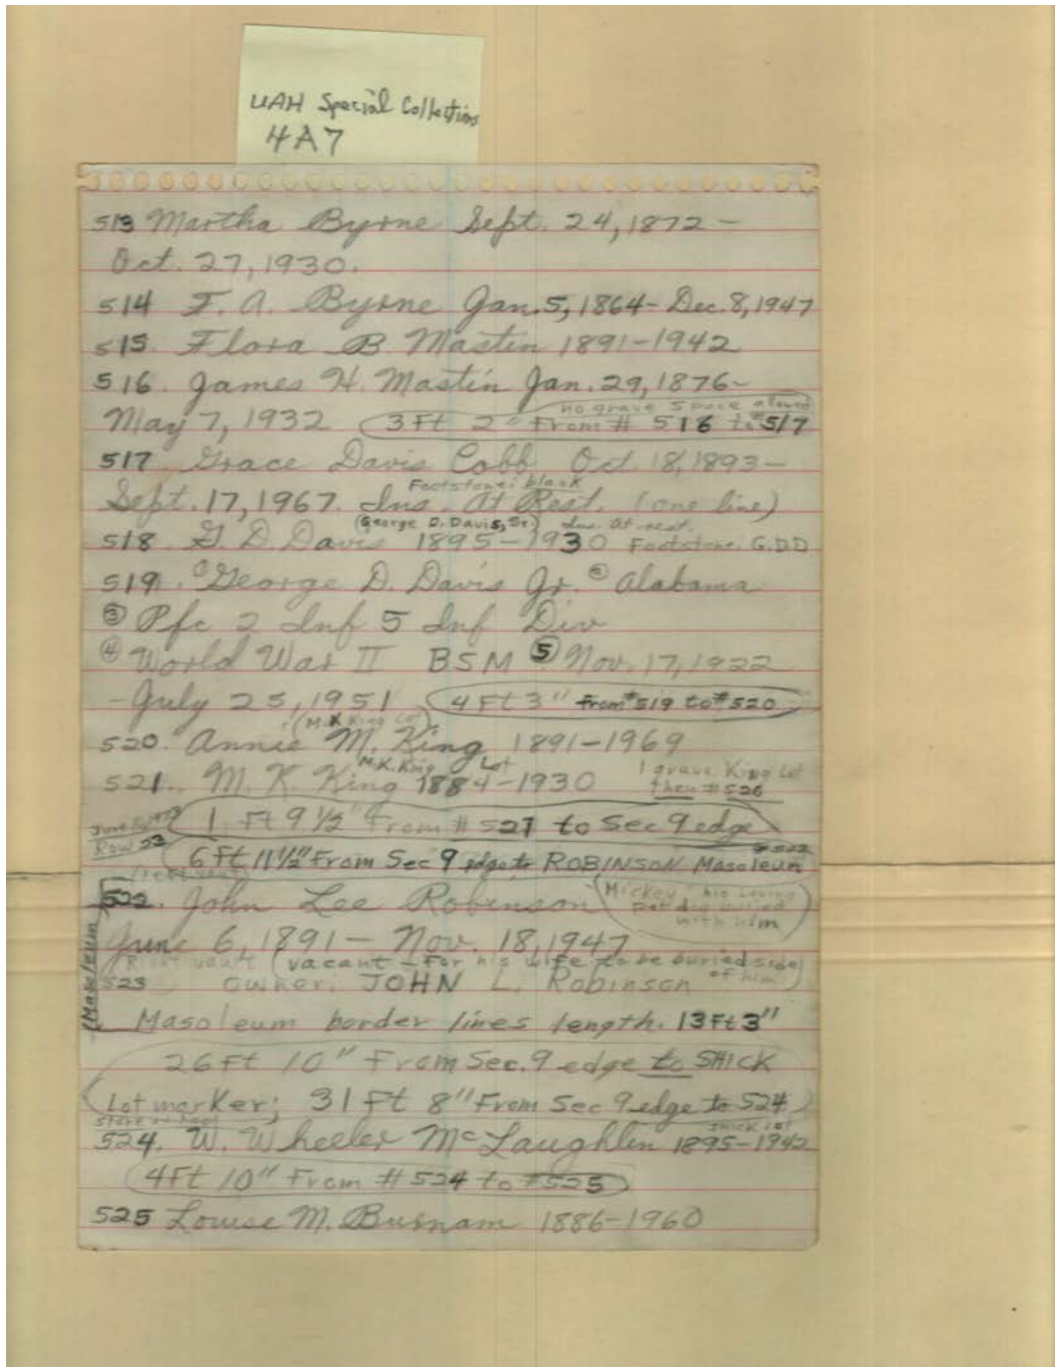 UAH Special Collections
4A7
513 Martha Byrne Sept. 24, 1872 –
Oct. 27, 1930.
514 T. A. Byrne Jan. 5, 1864 – Dec. 8, 1947
515. Flora B. Mastin 1891–1942
516. James H. Mastin Jan. 29, 1876–
no grave space allowed
May 7, 1932 3 Ft 2" From # 516 to #517
517. Grace Davis Cobb Oct. 18, 1893 –
Footstone: blank
Sept. 17, 1967. Ins. At Rest. (one line)
(George D. Davis, Sr.) Ins. At rest.
518. G. D. Davis 1895–1930 Footstone. G.D.D
519. ① George D. Davis Jr. ② Alabama
③ Pfc 2 Inf 5 Inf Div
④ World War II BSM ⑤ Nov. 17, 1922
– July 25, 1951 4 Ft 3" from #519 to #520
(M.K King Lot)
520. Annie M. King 1891–1969
M.K. King Lot
521. M. K. King 1884–1930 1 grave King Lot
then #526
1 Ft 9 1/2" From # 527 to Sec 9 edge
Row 23
#522
6 Ft 11 1/2" From Sec 9 edge to ROBINSON Masoleum
(left vault)
522. John Lee Robinson (Mickey, his Loving
pet dog buried
with him)
June 6, 1891 – Nov. 18, 1947
Right vault (vacant – for his wife to be buried side
of him)
523 owner. JOHN L. Robinson
(Masoleum
Masoleum border lines length. 13 Ft 3"
26 Ft 10" From Sec. 9 edge to SHICK
Lot marker; 31 Ft 8" From Sec 9 edge to 524
Shick lot
524. W. Wheeler McLaughlin 1895–1942
4 Ft 10" From # 524 to #525
525 Louise M. Burnam 1886–1960